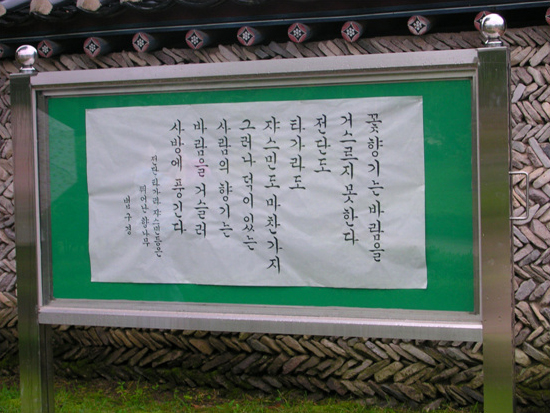 꽃향기는 바람을
거스르지 못한다
전단도
타가라도
쟈스민도 마찬가지
그러나 덕이 있는
사람의 향기는
바람을 거슬러
사방에 풍긴다
전단, 타가라, 쟈스민들은
뛰어난 향나무
법구경